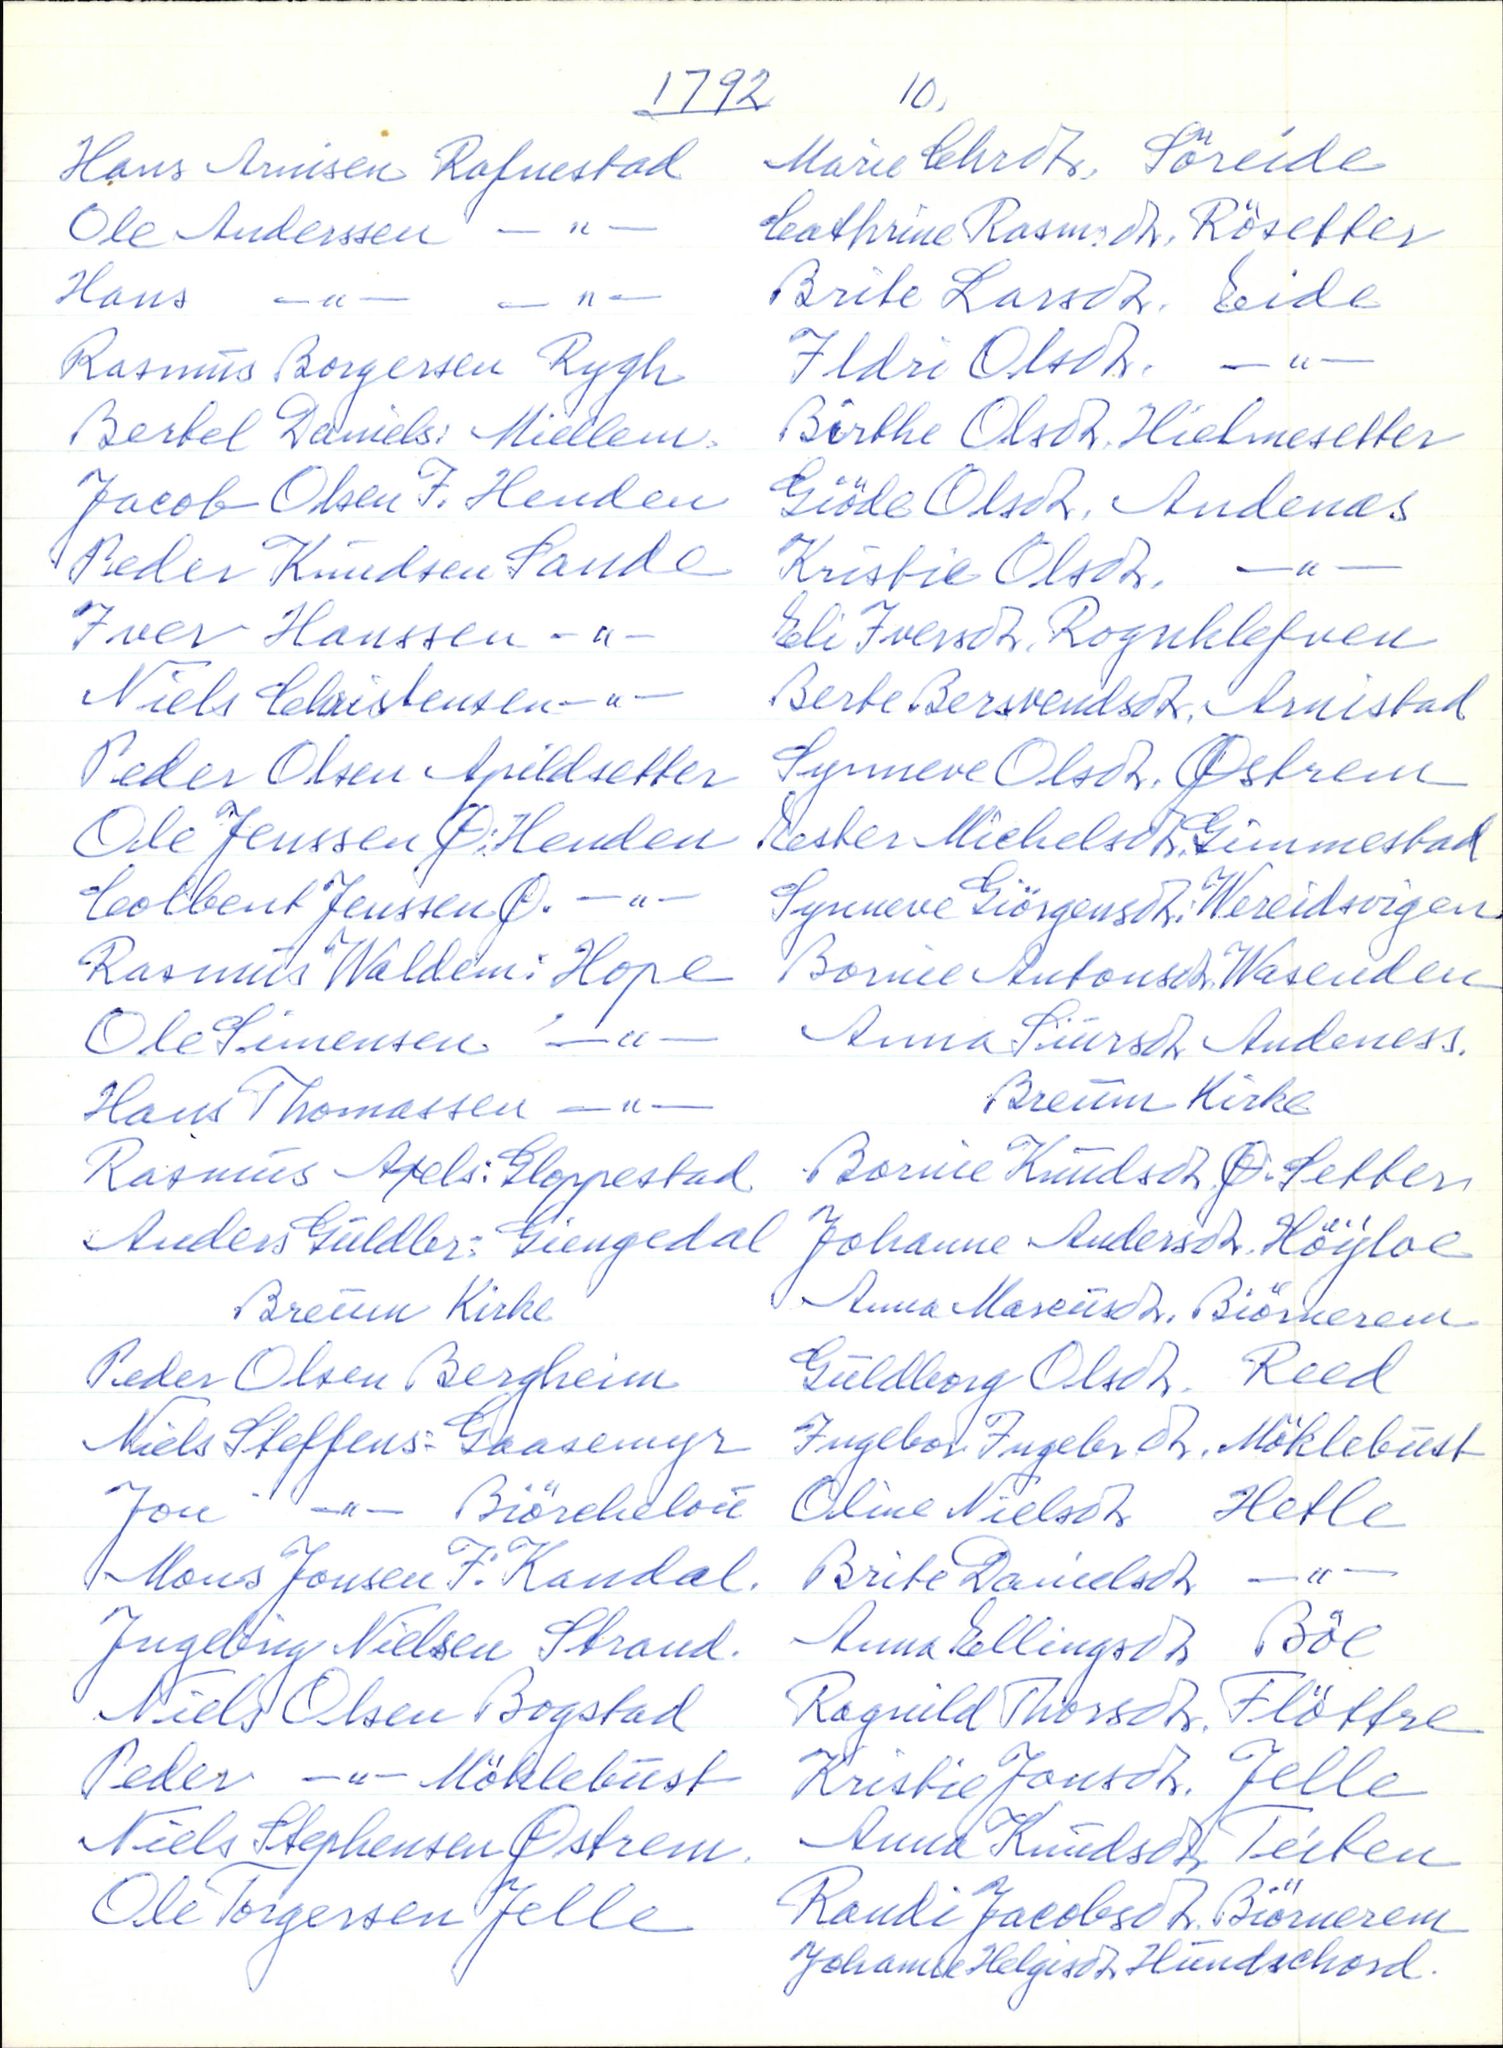 1792 10.
Hans Arnisen Rafnestad Marie Chrdtr. Söreide
Ole Anderssen —"— Cathrine Rasm:dtr. Rösetter
Hans —"— —"— Brite Larsdtr. Eide
Rasmus Borgersen Rygh Ildri Olsdtr. —"—
Bertel Daniels: Miellem. Birthe Olsdtr. Hielmesetter
Jacob Olsen F. Henden Giöde Olsdtr. Andenæs
Peder Knudsen Sande Kristie Olsdtr. —"—
Iver Hanssen -"- Eli Iversdtr. Rognklefven
Niels Christensen -"- Berte Bersvendsdtr. Arnistad
Peder Olsen Apildsetter Synneve Olsdtr. Østrem
Ole Jenssen Ø: Henden Ester Michelsdtr. Gimmestad
Colbent Jenssen Ø. —"— Synneve Giörgensdtr: Wereidsvigen
Rasmus Waldem: Hope Bornie Antonsdtr. Wasenden
Ole Simensen —"— Anna Siursdtr Andeness.
Hans Thomassen —"— Breum Kirke
Rasmus Axels: Gloppestad Bornie Knudsdtr Ø: Setter
Anders Guldbr: Giengedal Johanne Andersdtr. Höÿloe
Breum Kirke Anna Marcusdtr. Biörnerem
Peder Olsen Bergheim Guldborg Olsdtr. Reed
Niels Steffens: Gaasemyr Ingebor Ingebr dtr. Möklebust
Jon —"— Biörchelou Oline Nielsdtr Hetle
Mons Jonsen F: Kandal. Brite Danielsdtr —"—
Ingebrig Nielsen Strand. Anna Ellingsdtr Böe
Niels Olsen Bogstad Ragnild Thorsdtr. Flöttre
Peder —"— Möklebust Kristie Jonsdtr. Jelle
Niels Stephensen Østrem. Anna Knudsdtr Teiten
Ole Torgersen Jelle Randi Jacobsdtr. Biörnerem
Johanne Helgisdtr. Hundschord.